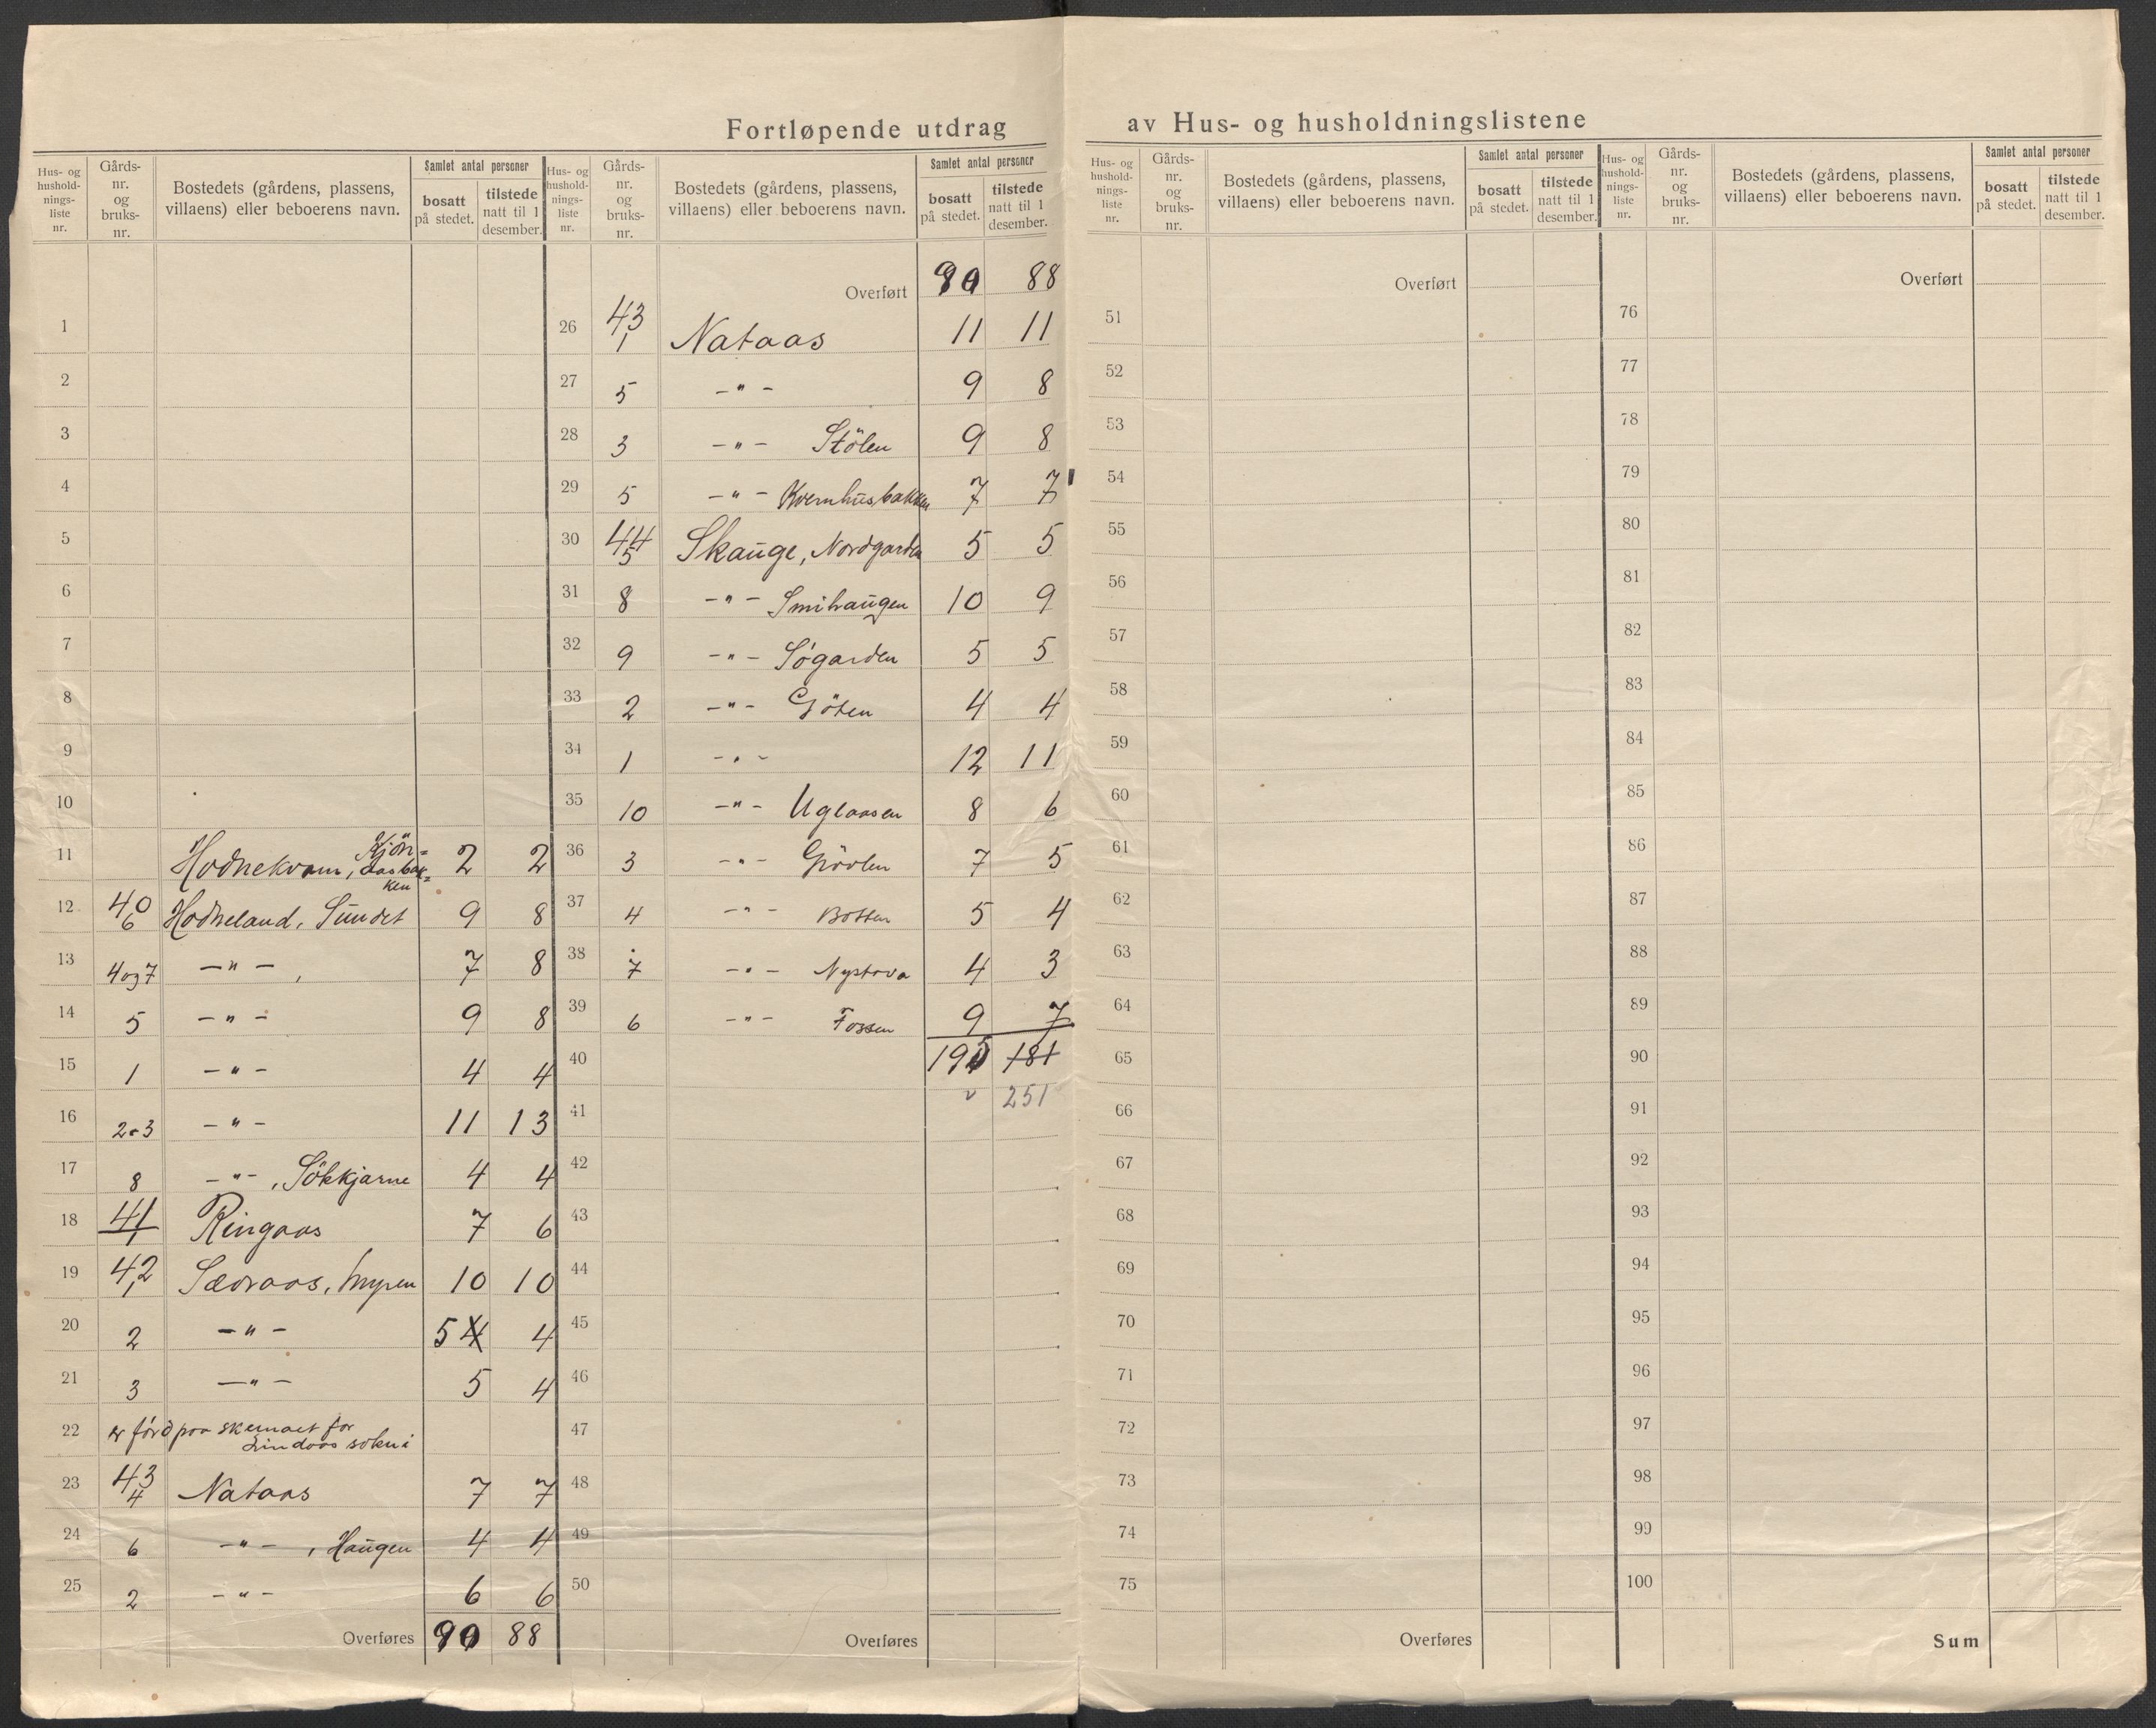 Fortløpende utdrag av Hus- og husholdningslistene
Hus- og hushold- nings- liste nr.
Gårds- nr. og bruks- nr.
Bostedets (gårdens, plassens, villaens) eller beboerens navn.
Samlet antal personer
bosatt på stedet.
tilstede natt til 1 desember.
1
2
3
4
5
6
7
8
9
10
11 Hodnekvam, 2 2
12 40 6 Hodneland, Sundet 9 8
13 4 og 7 -"- , 7 8
14 5 -"- 9 8
15 1 -"- 4 4
16 2-3 -"- 11 13
17 8 -"-, Sökkjarne 4 4
18 41 1 Ringaas 7 6
19 42 1 Sædraas, Myren 10 10
20 2 -"- 5 4 4
21 3 -"- 5 4
22 er förd paa skemaet for
Lindaas sokn i
23 43 4 Nataas 7 7
24 6 -"- , Haugen 4 4
25 2 -"- 6 6
Overføres 90 88
Hus- og hushold- nings- liste nr.
Gårds- nr. og bruks- nr.
Bostedets (gårdens, plassens, villaens) eller beboerens navn.
Samlet antal personer
bosatt på stedet.
tilstede natt til 1 desember.
Overført 90 88
26 43 1 Nataas 11 11
27 5 -"- 9 8
28 3 -"- Stölen 9 8
29 5 -"- Kvernhusbakken 7 7
30 44 5 Skauge, Nordgarden 5 5
31 8 -"- Smihaugen 10 9
32 9 -"- Sögarden 5 5
33 2 -"- Göten 4 4
34 1 -"- 12 11
35 10 -"- Uglaasen 8 6
36 3 -"- 7 5
37 4 -"- Botten 5 4
38 7 -"- Nystova 4 3
39 6 -"- Fossen 9 7
40 195 181
41 251
42
43
44
45
46
47
48
49
50
Overføres
Hus- og hushold- nings- liste nr.
Gårds- nr. og bruks- nr.
Bostedets (gårdens, plassens, villaens) eller beboerens navn.
Samlet antal personer
bosatt på stedet.
tilstede natt til 1 desember.
Overført
51
52
53
54
55
56
57
58
59
60
61
62
63
64
65
66
67
68
69
70
71
72
73
74
75
Overføres
Hus- og hushold- nings- liste nr.
Gårds- nr. og bruks- nr.
Bostedets (gårdens, plassens, villaens) eller beboerens navn.
Samlet antal personer
bosatt på stedet.
tilstede natt til 1 desember.
Overført
76
77
78
79
80
81
82
83
84
85
86
87
88
89
90
91
92
93
94
95
96
97
98
99
100
Sum